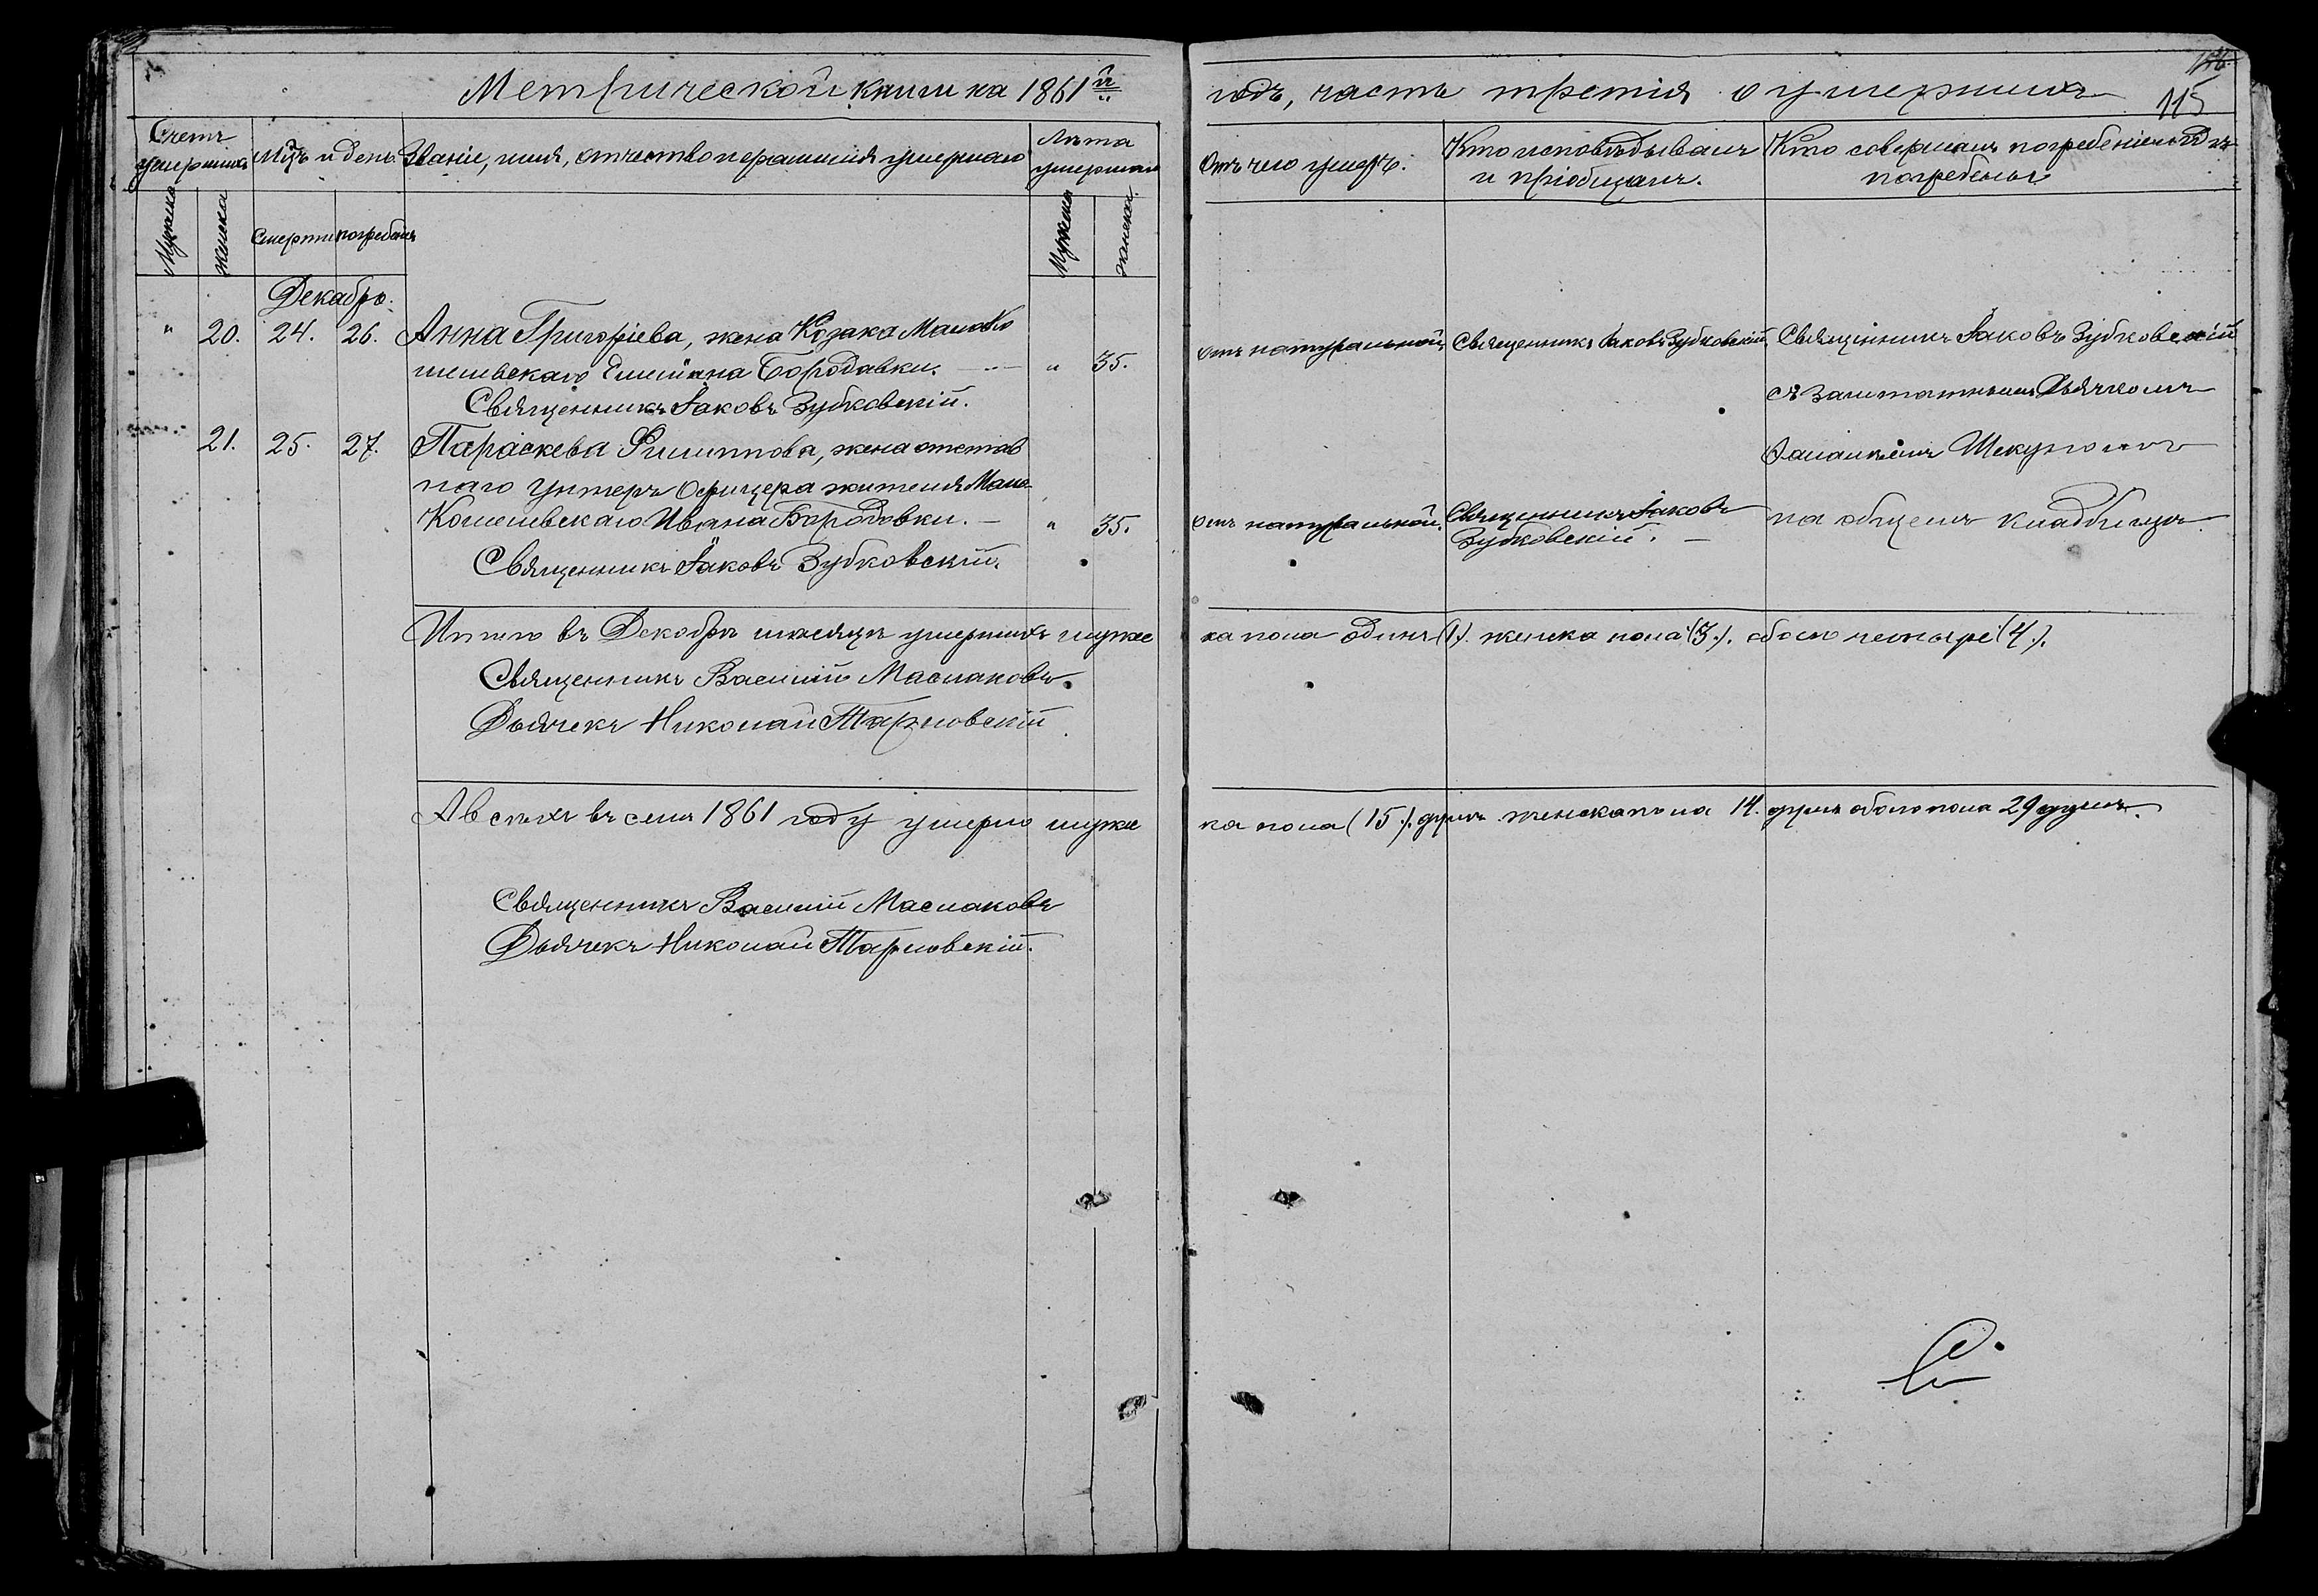 Метрической книги на 1861й
годъ, часть третія о умершихъ
115
Счетъ умершихъ
Мцъ и день
Званіе, имя, отчество и фамилія умершаго
Лѣта умершаго
Отъ чего умеръ.
Кто исповѣдывалъ и пріобщалъ.
Кто совершалъ погребеніе и гдѣ погребены
Мужеска
женска
Смерти
погребенія
Мужеска
женска
Декабрь.
" 20. 24. 26. Анна Григоріева, жена Козака МалоКо
шелевскаго Емеліана Бородавки. " 35.
отъ натуральной. Священникъ Іаковъ Зубковскій. Священникъ Іаковъ Зубковскій
Священникъ Іаковъ Зубковскій.
съ Заштатнымъ Дьячкомъ
21. 25. 27. Параскева Филиппова, жена отстав
Шекуномъ
наго Унтеръ Офицера жителя Мало-
Кошелевскаго Ивана Бородовки. " 35.
отъ натуральной. Священникъ Іаковъ Зубковскій. на общемъ кладбищѣ
Священникъ Іаковъ Зубковскій.
Итого въ Декабрѣ мѣсяцѣ умершихъ муже
ска пола одинъ (1). женска пола (3.). обоего четыре (4.).
Священникъ Василій Маслаковъ
Дьячекъ Николай Тарновскій
А всѣхъ въ семъ 1861 году умерло муже
ска пола (15.). душъ женска пола 14. душъ обоего пола 29 душъ.
Священникъ Василій Маслаковъ
Дьячекъ Николай Тарновскій.